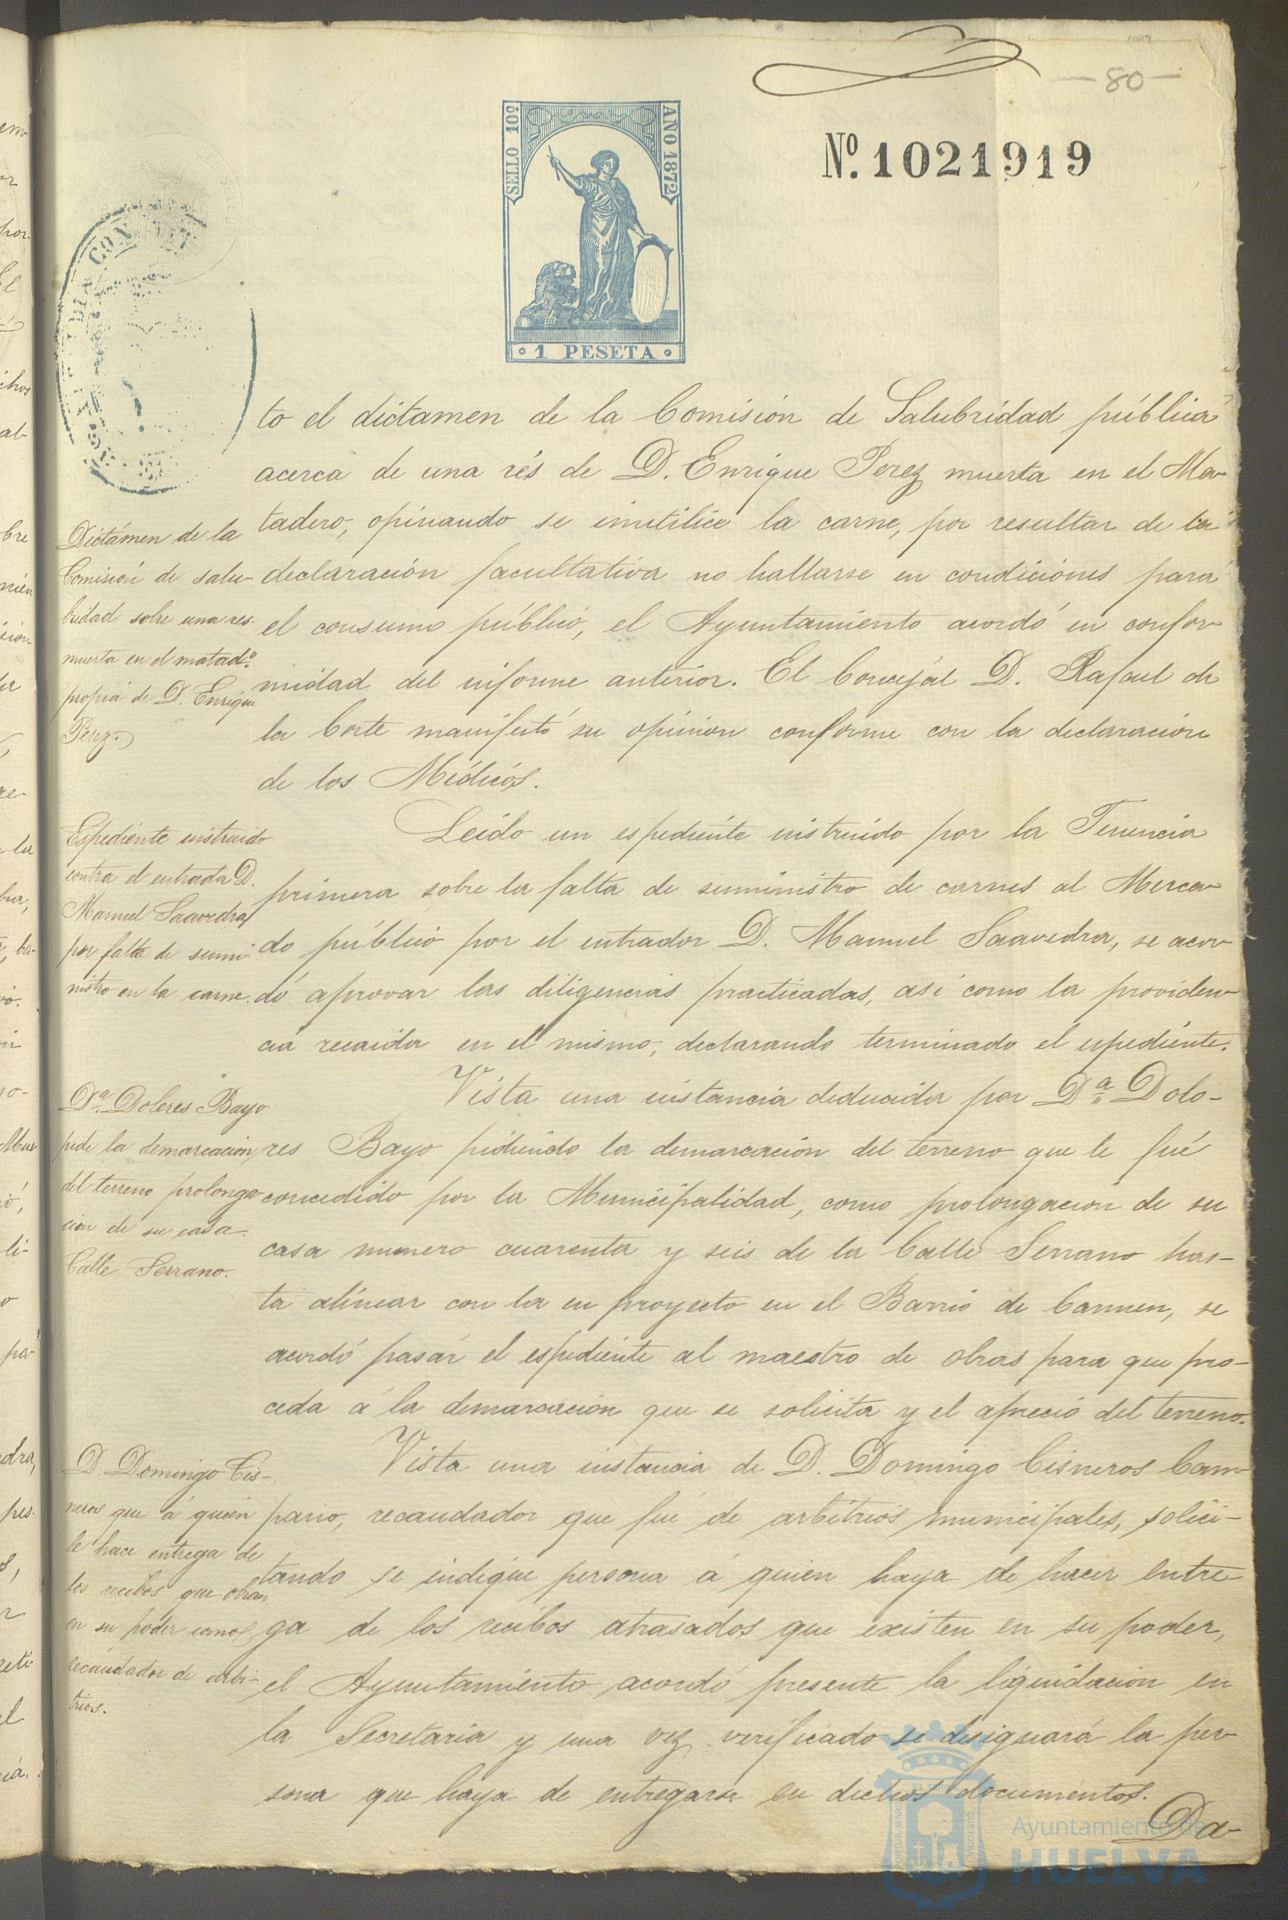 80
SELLO 10º
AÑO 1872
Nº. 1021919
1 PESETA
to el dictamen de la Comisión de Salubridad pública
acerca de una rés de D. Enrique Perez muerta en el Ma-
tadero, opinando se inutilice la carne, por resultar de la
declaración facultativa no hallarse en condiciones para
el consumo público, el Ayuntamiento acordó en confor-
midad del informe anterior. El Concejal D. Rafael de
la Corte manifestó su opinion conforme con la declaracion
de los Médicos.
Dictámen de la
Comisión de salu-
bridad sobre una res
muerta en el matadº
propia de D. Enrique
Perez.
Leido un espediente instruido por la Tenencia
primera sobre la falta de suministro de carnes al Merca-
do público por el entrador D. Manuel Saavedra, se acor-
dó aprovar las diligencias practicadas, asi como la providen-
cia recaida en el mismo, declarando terminado el espediente.
Espediente instruido
contra el entrada D.
Manuel Saavedra
por falta de sumi-
nistro en la carne.
Vista una instancia deducida por Dª Dolo-
res Bayo pidiendo la demarcación del terreno que le fué
concedido por la Municipalidad, como prolongacion de su
casa numero cuarenta y seis de la Calle Serrano has-
ta alinear con la en proyecto en el Barrio de Carmen, se
acordó pasar el espediente al maestro de obras para que pro-
ceda á la demarcación que se solicita y el aprecio del terreno.
Dª Dolores Bayo
pide la demarcacion
del terreno prolonga
cion de su casa
Calle Serrano.
Vista una instancia de D. Domingo Cisneros Cam-
pario, recaudador que fué de arbitrios municipales, solici-
tando se indique persona á quien haya de hacer entre-
ga de los recibos atrasados que existen en su poder,
el Ayuntamiento acordó presente la liquidacion en
la Secretaria y una vez verificado se designará la per-
sona que haya de entregarse en dichos documentos.
D. Domingo Cis-
neros que á quien
le hace entrega de
los recibos que obran
en su poder como
recaudador de arbi-
trios.
Da-
Ayuntamiento de
HUELVA